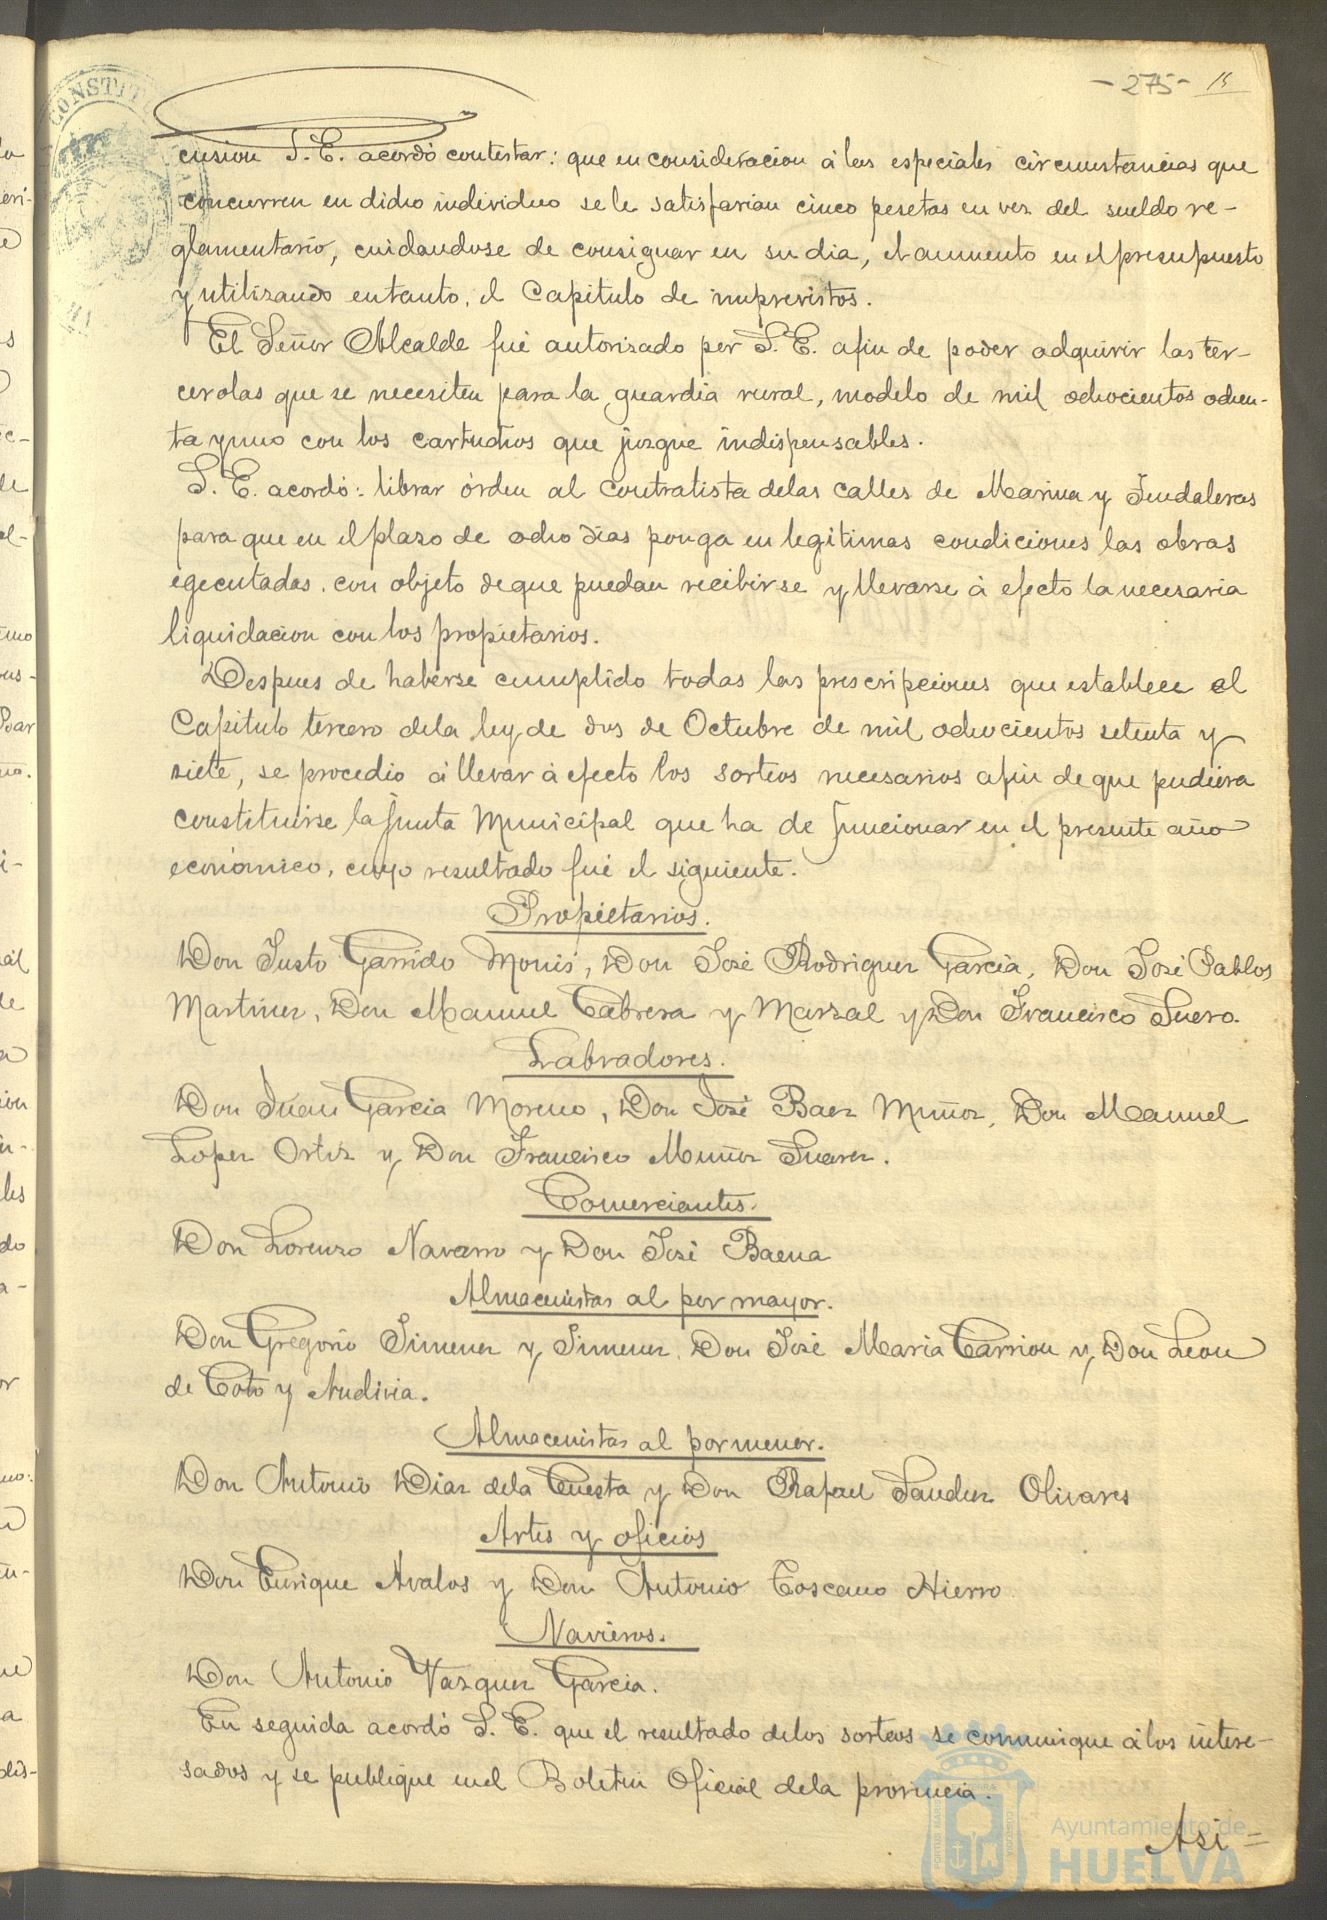 - 275 - 15
CONSTITU
cusion S. E. acordó contestar: que en consideracion á las especiales circunstancias que
concurren en dicho individuo se le satisfarian cinco pesetas en vez del sueldo re-
glamentario, cuidandose de consignar en su dia, el aumento en el presupuesto
y utilizando entanto, el Capitulo de imprevistos.
El Señor Alcalde fué autorizado por S. E. afin de poder adquirir las ter-
cerolas que se necesiten para la guardia rural, modelo de mil ochocientos ochen-
ta y uno con los cartuchos que juzgue indispensables.
S. E. acordó: librar órden al contratista delas calles de Marina y Tendaleras
para que en el plazo de ocho dias ponga en legitimas condiciones las obras
egecutadas, con objeto de que puedan recibirse y llevarse á efecto la necesaria
liquidacion con los propietarios.
Despues de haberse cumplido todas las prescripciones que establece el
Capitulo tercero dela ley de dos de Octubre de mil ochocientos setenta y
siete, se procedio á llevar á efecto los sorteos necesarios afin de que pudiera
constituirse la Junta Municipal que ha de funcionar en el presente año
económico, cuyo resultado fué el siguiente.
Propietarios.
Don Justo Garrido Monis, Don José Rodriguez Garcia, Don José Pablos
Martinez, Don Manuel Cabrera y Marzal y Don Francisco Suero.
Labradores.
Don Juan Garcia Moreno, Don José Baez Muñoz, Don Manuel
Lopez Ortiz y Don Francisco Muñoz Suarez.
Comerciantes.
Don Lorenzo Navarro y Don José Baena
Almacenistas al por mayor.
Don Gregorio Jimenez y Jimenez, Don José Maria Carrion y Don Leon
de Coto y Andivia.
Almacenistas al por menor.
Don Antonio Diaz dela Cuesta y Don Rafael Sanchez Olivares
Artes y oficios
Don Enrique Avalos y Don Antonio Toscano Hierro
Navieros.
Don Antonio Vazquez Garcia.
En seguida acordó S. E. que el resultado delos sorteos se comunique á los intere-
sados y se publique en el Boletin Oficial dela provincia.
Asi =
Ayuntamiento de
HUELVA